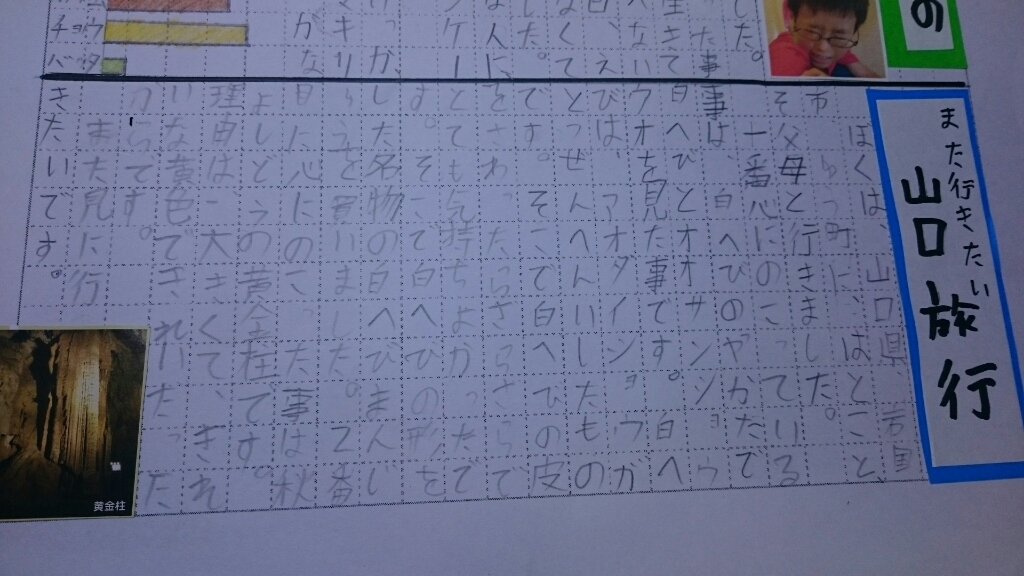 の
した。
った事
生きて
なくて
した。
な人に、
ンケー
けっか、
マキリ
がな
チョウ
バッタ
また行きたい
山口旅行
ぼくは、山口県
町に、はとこと、
そ父母と行きました。
一番心にのこっている
事は、白へびのヤかたで
白へびとオオサンショウ
ウオを見た事です。白へ
びは、アオダイショウが
とつぜんへんいしたもの
です。そこで白へびの皮
をさわったらさらさらで
とても気持ちよかったで
す。そこで白へびの形を
した名物の白へびまんじ
ゅうを買いました。2番
目に心にのこった事は秋
よしどうの黄金柱です。
理由は、大きくて、きれ
いな黄色できれいだった
からです。
また見に行
きたいです。
黄金柱